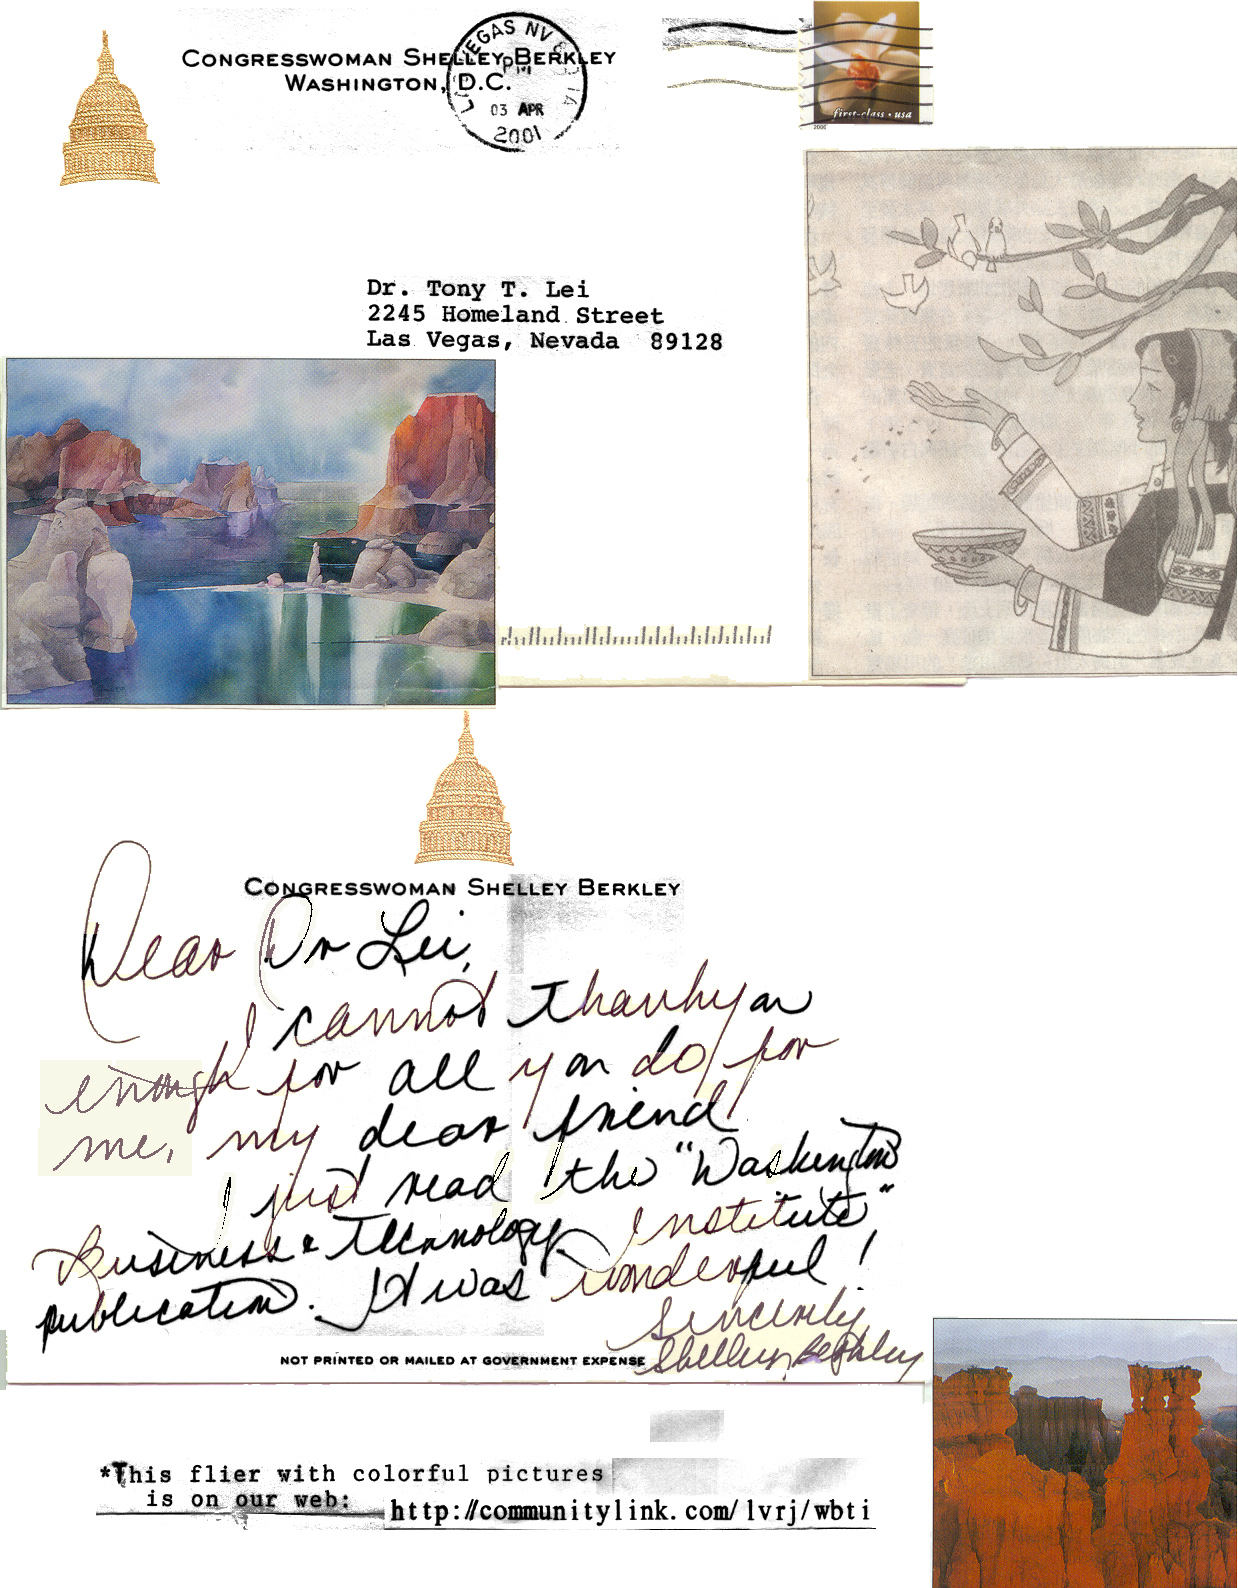 CONGRESSWOMAN SHELLEY BERKLEY
WASHINGTON, D.C.
LAS VEGAS NV
PM
03 APR
2001
first-class • usa
2000
Dr. Tony T. Lei
2245 Homeland Street
Las Vegas, Nevada 89128
CONGRESSWOMAN SHELLEY BERKLEY
Dear Dr Lei,
I cannot thank you
enough for all you do for
me, my dear friend
I just read the "Washington
Business & Technology Institute"
publication. It was wonderful!
Sincerely,
Shelley Berkley
NOT PRINTED OR MAILED AT GOVERNMENT EXPENSE
*This flier with colorful pictures
is on our web: http://communitylink.com/lvrj/wbti